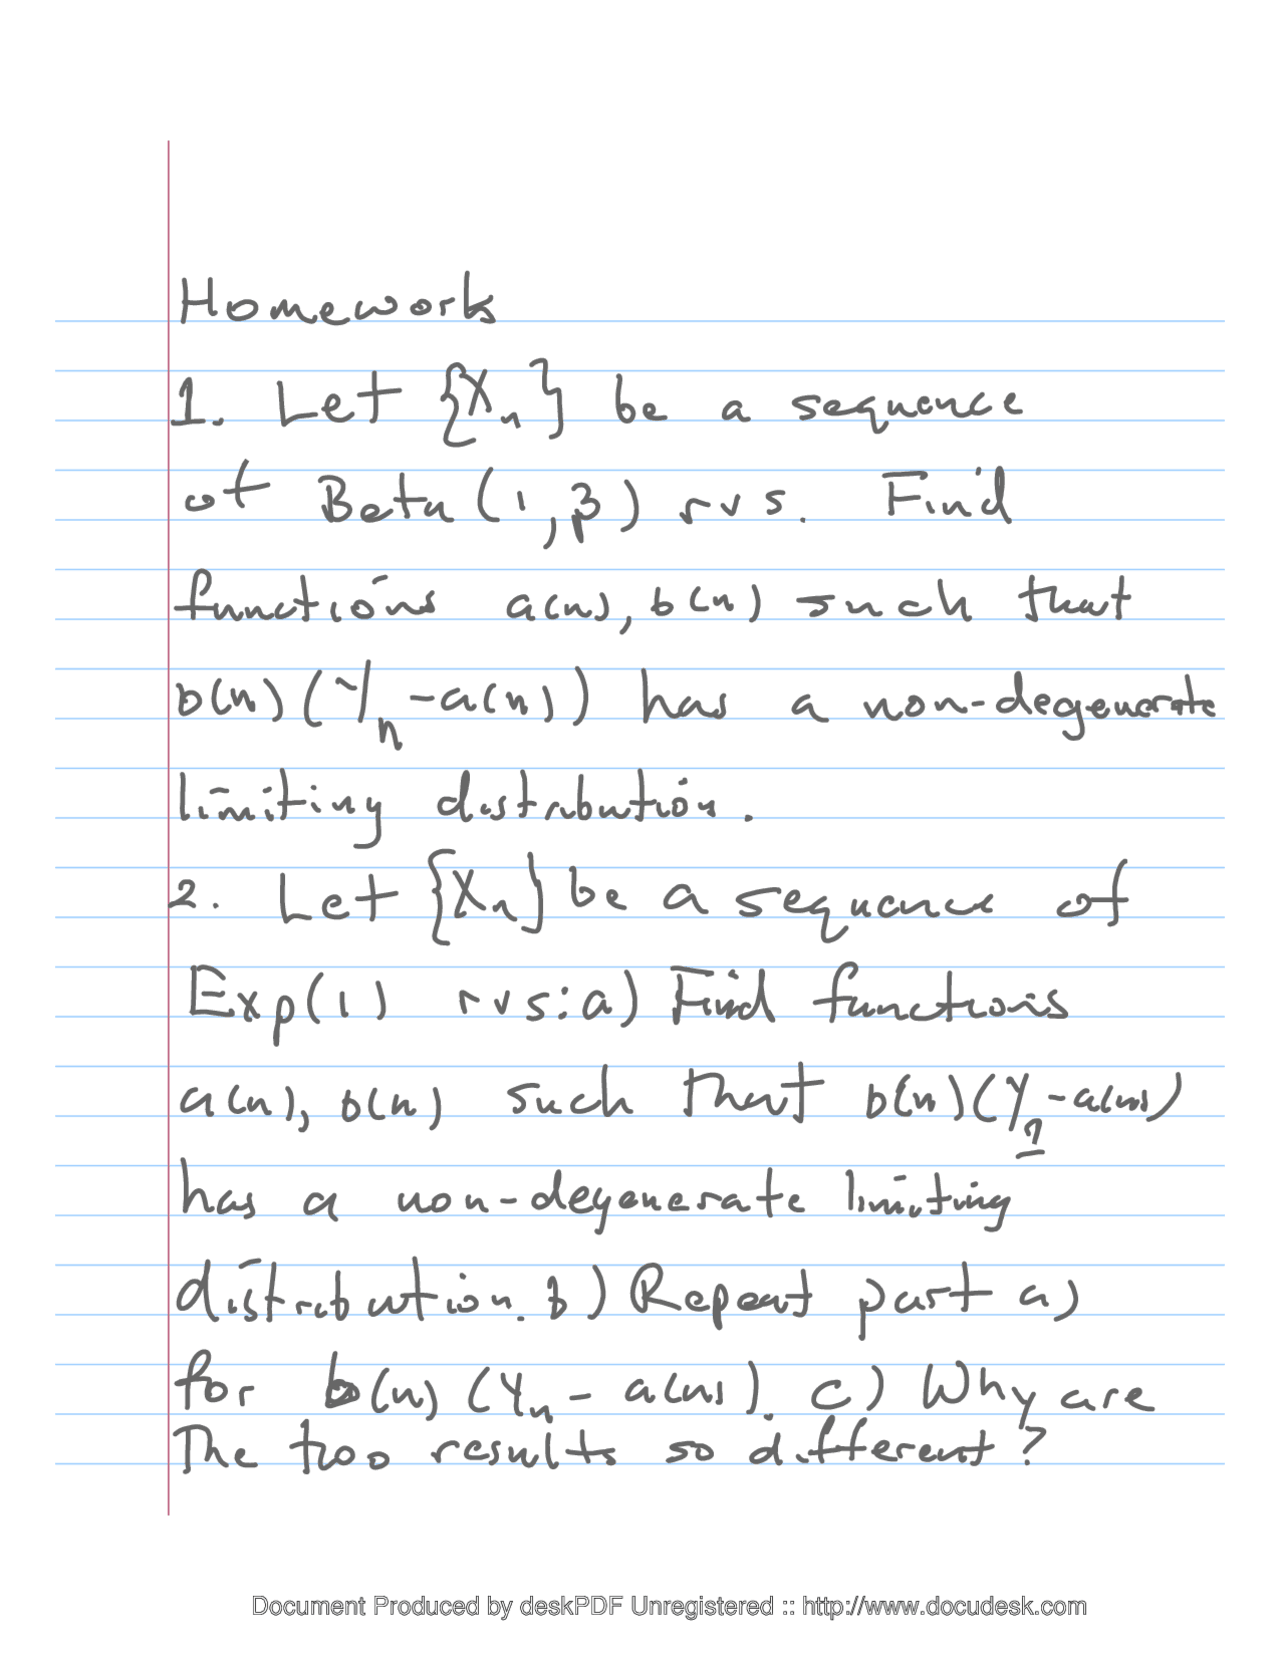 Homework
1. Let {Xn} be a sequence
of Beta (1, β) rvs. Find
functions a(n), b(n) such that
b(n) (Yn - a(n)) has a non-degenerate
limiting distribution.
2. Let {Xn} be a sequence of
Exp(1) rvs: a) Find functions
a(n), b(n) such that b(n) (Y1 - a(n))
has a non-degenerate limiting
distribution. b) Repeat part a)
for b(n) (Yn - a(n)). c) Why are
The two results so different?
Document Produced by deskPDF Unregistered :: http://www.docudesk.com